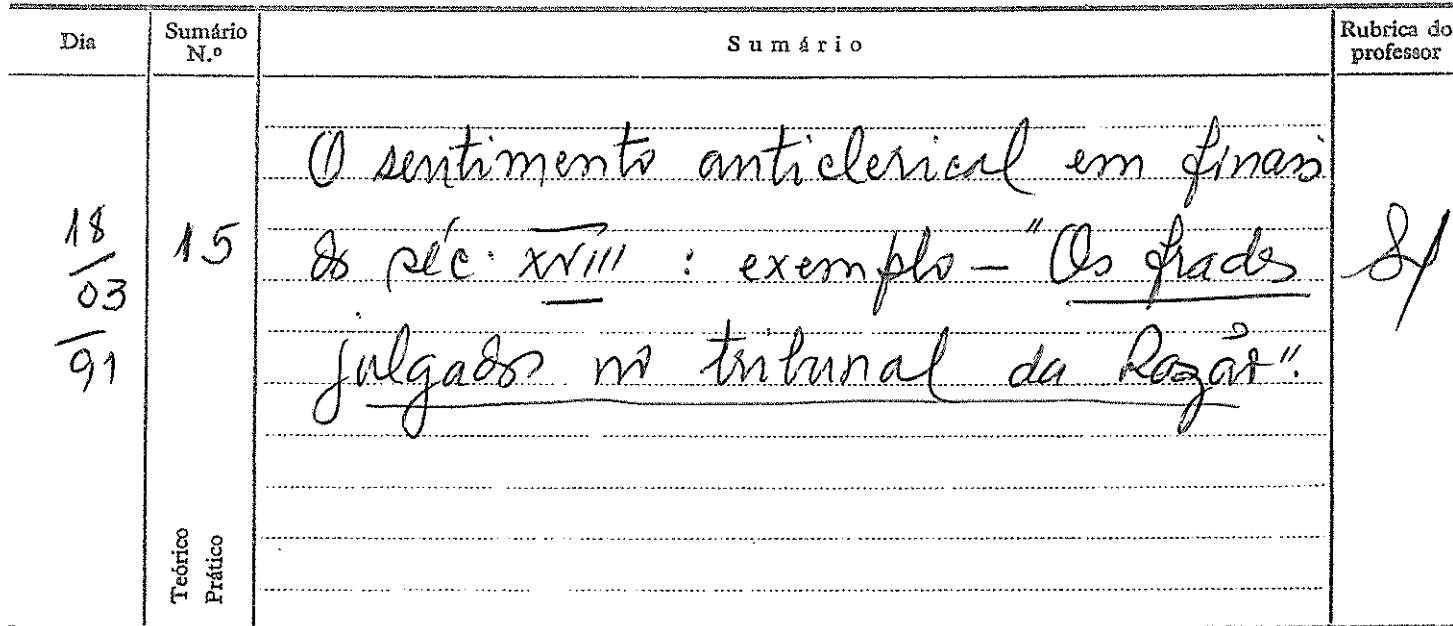 Dia
Sumário N.º
Sumário
Rubrica do professor
18/03/91
15
O sentimento anticlerical em finais
do séc. XVIII : exemplo — "Os frades
julgados no tribunal da Razão".
Teórico
Prático